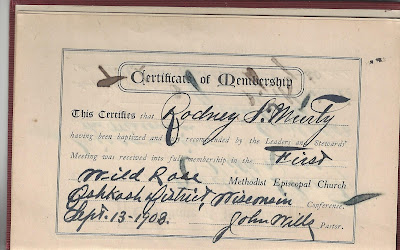 Certificate of Membership
This Certifies that Rodney S. Murty
having been baptized and recommended by the Leaders and Stewards'
Meeting was received into full membership in the First
Wild Rose Methodist Episcopal Church
Oshkosh District, Wisconsin Conference.
Sept. 13-1903. John Wills Pastor.